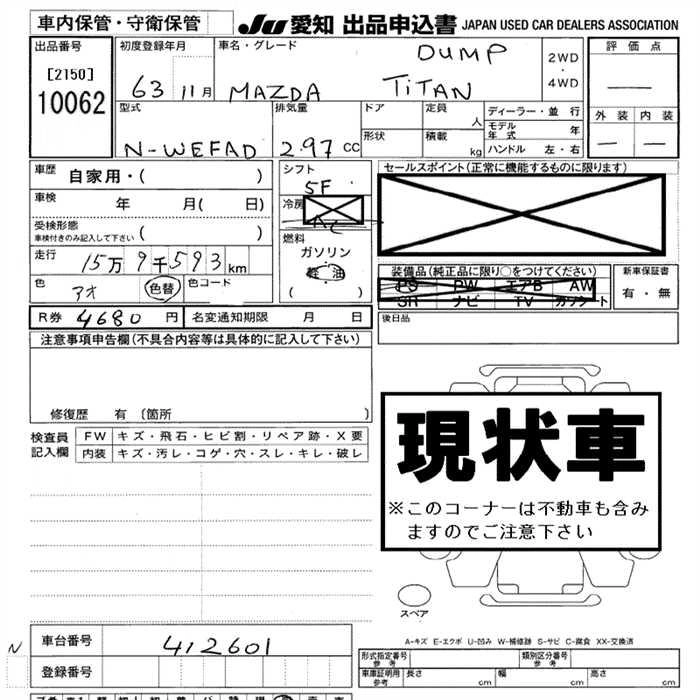 車内保管・守衛保管 JU 愛知 出品申込書 JAPAN USED CAR DEALERS ASSOCIATION
出品番号
[2150]
10062
初度登録年月
63 11月
車名・グレード
DUMP
MAZDA TITAN
2WD
・
4WD
評価点
—
外装 内装
— —
型式
N-WEFAD
排気量
2.97 cc
ドア
形状
定員
人
積載
kg
ディーラー・並行
モデル年式 年
ハンドル 左・右
車歴 自家用・( )
車検 年 月( 日)
受検形態
車検付きのみ記入して下さい ( )
走行 15万9千593km
色 アオ 色替 色コード
シフト
5F
冷房
AC
燃料
ガソリン
軽油
( )
セールスポイント(正常に機能するものに限ります)
装備品(純正品に限り○をつけてください)
PS PW エアB AW
SR ナビ TV カワシート
新車保証書
有・無
R券 4680 円 名変通知期限 月 日
後日品
注意事項申告欄(不具合内容等は具体的に記入して下さい)
修復歴 有 (箇所 )
検査員
記入欄
FW キズ・飛石・ヒビ割・リペア跡・X要
内装 キズ・汚レ・コゲ・穴・スレ・キレ・破レ
現状車
※このコーナーは不動車も含み
ますのでご注意下さい
スペア
A-キズ E-エクボ U-凹み W-補修跡 S-サビ C-腐食 XX-交換済
N
車台番号 412601
登録番号
形式指定番号
参考
類別区分番号
参考
車庫証明用
参考
長さ cm 幅 cm 高さ cm